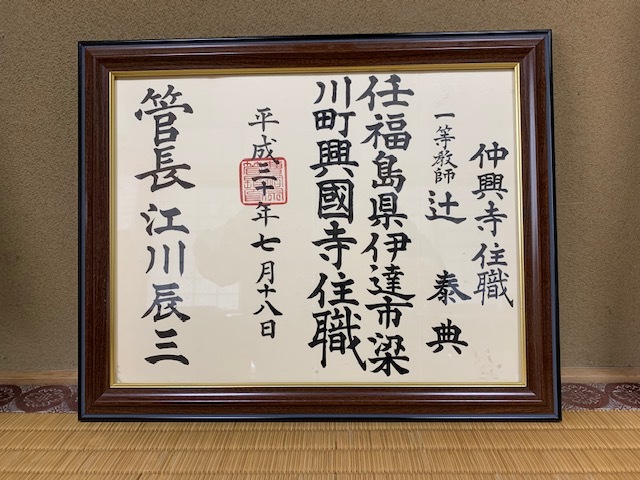 仲興寺住職
一等教師 辻 泰典
任福島県伊達市梁
川町興國寺住職
平成三十年七月十八日
管長 江川辰三